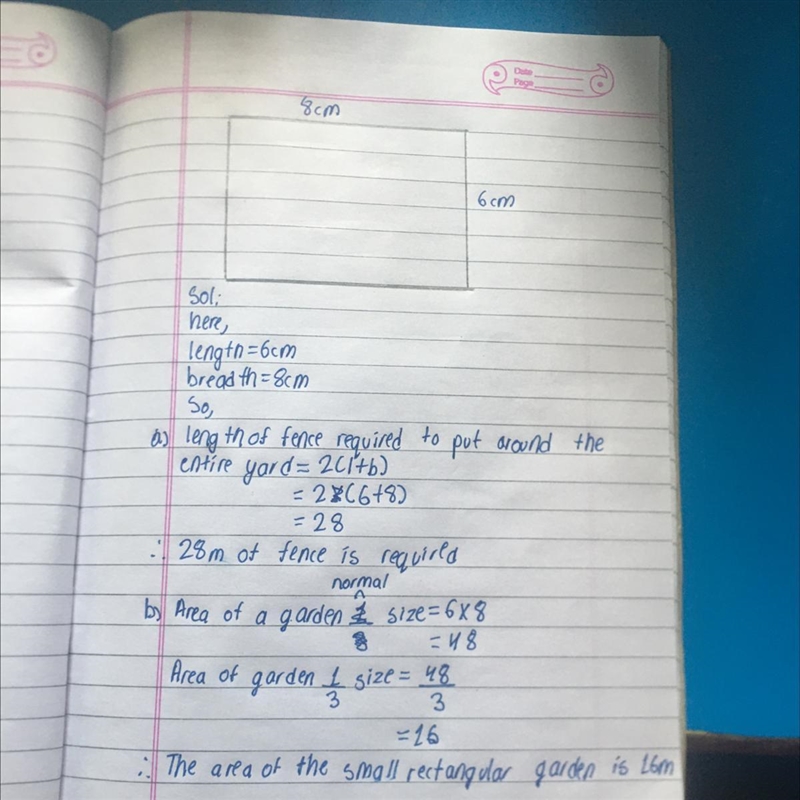 Date
Page
8cm
6cm
Sol;
here,
length=6cm
breadth=8cm
So,
a) length of fence required to put around the
entire yard= 2(l+b)
= 2(6+8)
= 28
∴ 28m of fence is required
normal
b) Area of a garden size=6×8
=48
Area of garden 1/3 size= 48/3
=16
∴ The area of the small rectangular garden is 16m